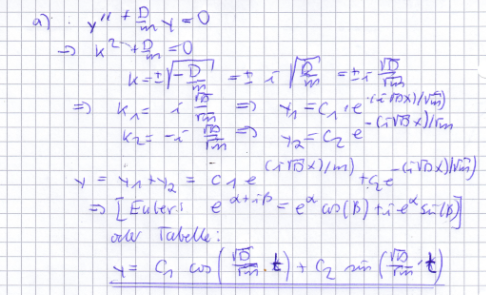 a) y'' + D/m y = 0
=> k² + D/m = 0
k = ±√(-D/m) = ± i √(D/m) = ± i √D/√m
=> k₁ = i √D/√m => y₁ = c₁ · e^((i√D x)/√m)
k₂ = -i √D/√m => y₂ = c₂ e^(-(i√D x)/√m)
y = y₁ + y₂ = c₁ e^((i√D x)/m) + c₂ e^(-(i√D x)/√m)
=> [Euler: e^(α+iβ) = e^α cos(β) + i e^α sin(β)]
oder Tabelle:
y = c₁ cos(√D/√m · t) + c₂ sin(√D/√m · t)